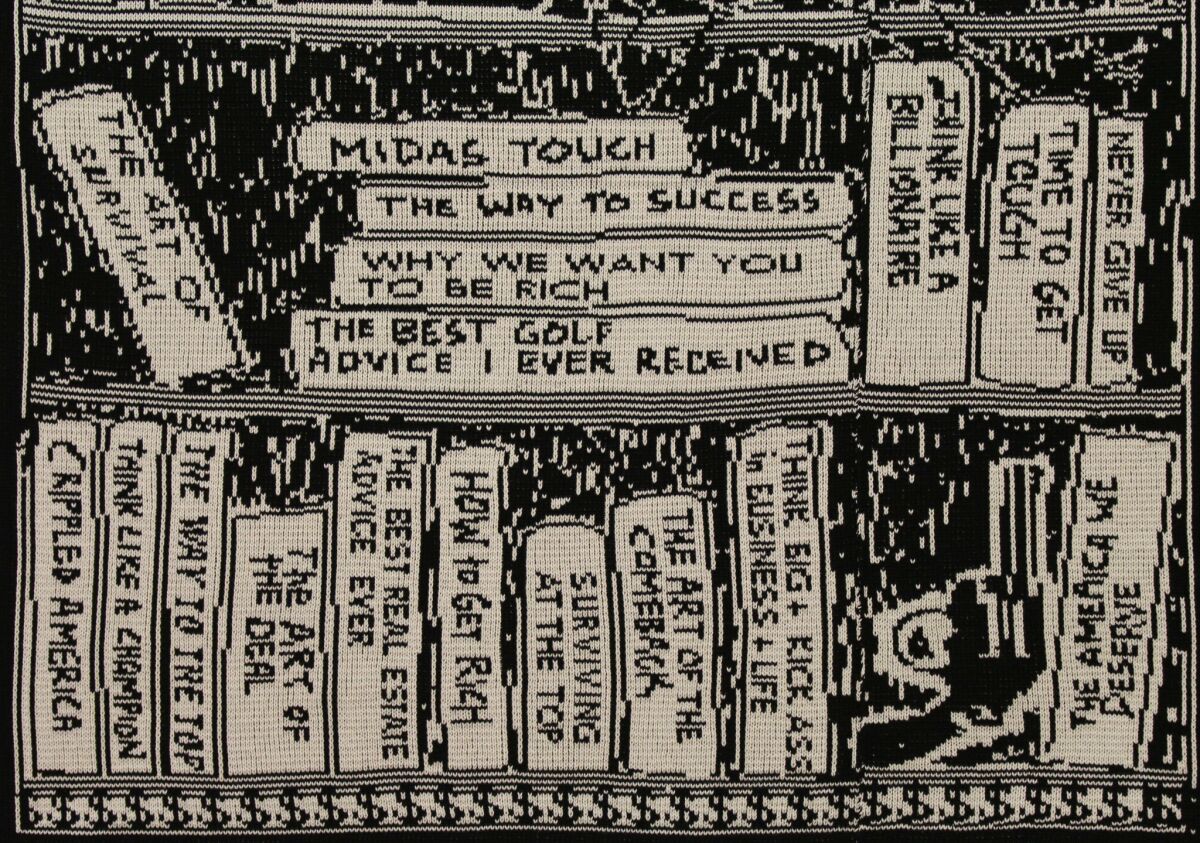 THE ART OF
SURVIVAL
MIDAS TOUCH
THE WAY TO SUCCESS
WHY WE WANT YOU
TO BE RICH
THE BEST GOLF
ADVICE I EVER RECEIVED
THINK LIKE A
BILLIONAIRE
TIME TO GET
TOUGH
NEVER GIVE UP
CRIPPLED AMERICA
THINK LIKE A CHAMPION
THE WAY TO THE TOP
The ART OF
THE DEAL
THE BEST REAL ESTATE
ADVICE EVER
HOW to GET RICH
SURVIVING
AT THE TOP
THE ART OF THE
COMEBACK
THINK BIG + KICK ASS
in BISINESS + LIFE
THE AMERICA WE
DESERVE